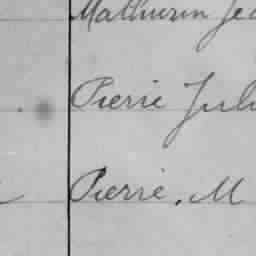 Mathurin Je
Pierre Juli
Pierre. M